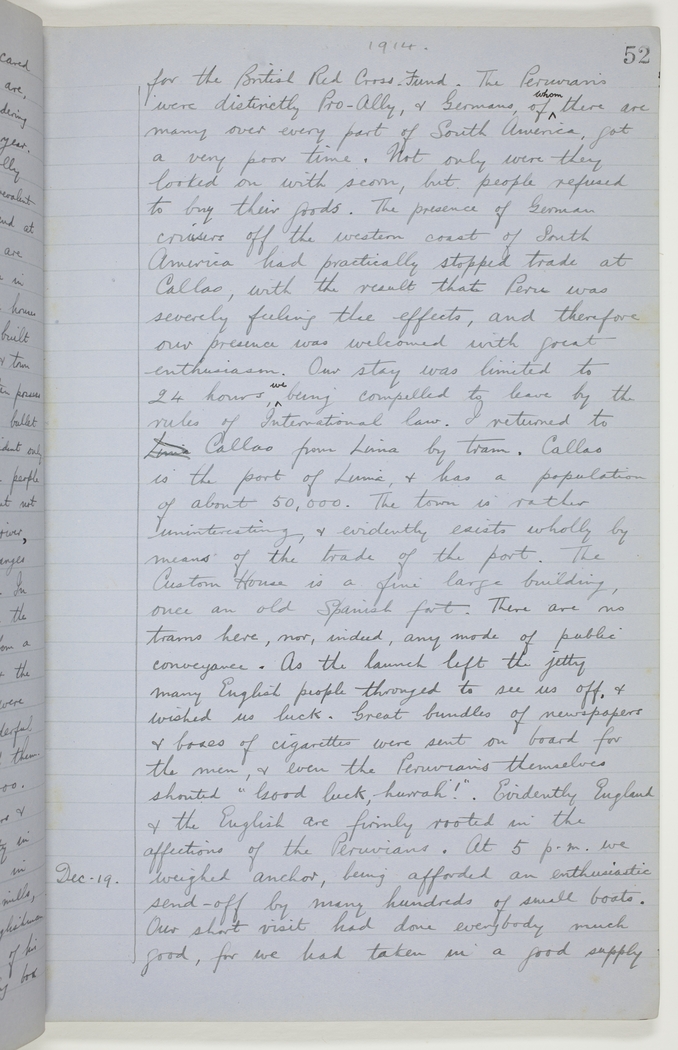 1914.
52
for the British Red Cross Fund. The Peruvians
were distinctly Pro-Ally, & Germans, of whom there are
many over every part of South America, got
a very poor time. Not only were they
looked on with scorn, but people refused
to buy their goods. The presence of German
cruisers off the western coast of South
America had practically stopped trade at
Callao, with the result that Peru was
severely feeling the effects, and therefore
our presence was welcomed with great
enthusiasm. Our stay was limited to
24 hours, we being compelled to leave by the
rules of International law. I returned to
Lima Callao from Lima by tram. Callao
is the port of Lima, & has a population
of about 50,000. The town is rather
uninteresting, & evidently exists wholly by
means of the trade of the port. The
Custom House is a fine large building,
once an old Spanish fort. There are no
trams here, nor, indeed, any mode of public
conveyance. As the launch left the jetty
many English people thronged to see us off, &
wished us luck. Great bundles of newspapers
& boxes of cigarettes were sent on board for
the men, & even the Peruvians themselves
shouted "Good luck, hurrah!". Evidently England
& the English are firmly rooted in the
affections of the Peruvians. At 5 p.m. we
Dec. 19. weighed anchor, being afforded an enthusiastic
send-off by many hundreds of small boats.
Our short visit had done everybody much
good, for we had taken in a good supply
cared
are,
dering
year.
at
are
in
houses
built
& town
posses
ballet
only
people
not
river,
In
the
from a
the
were
them
&
in
in
mills,
of his
box